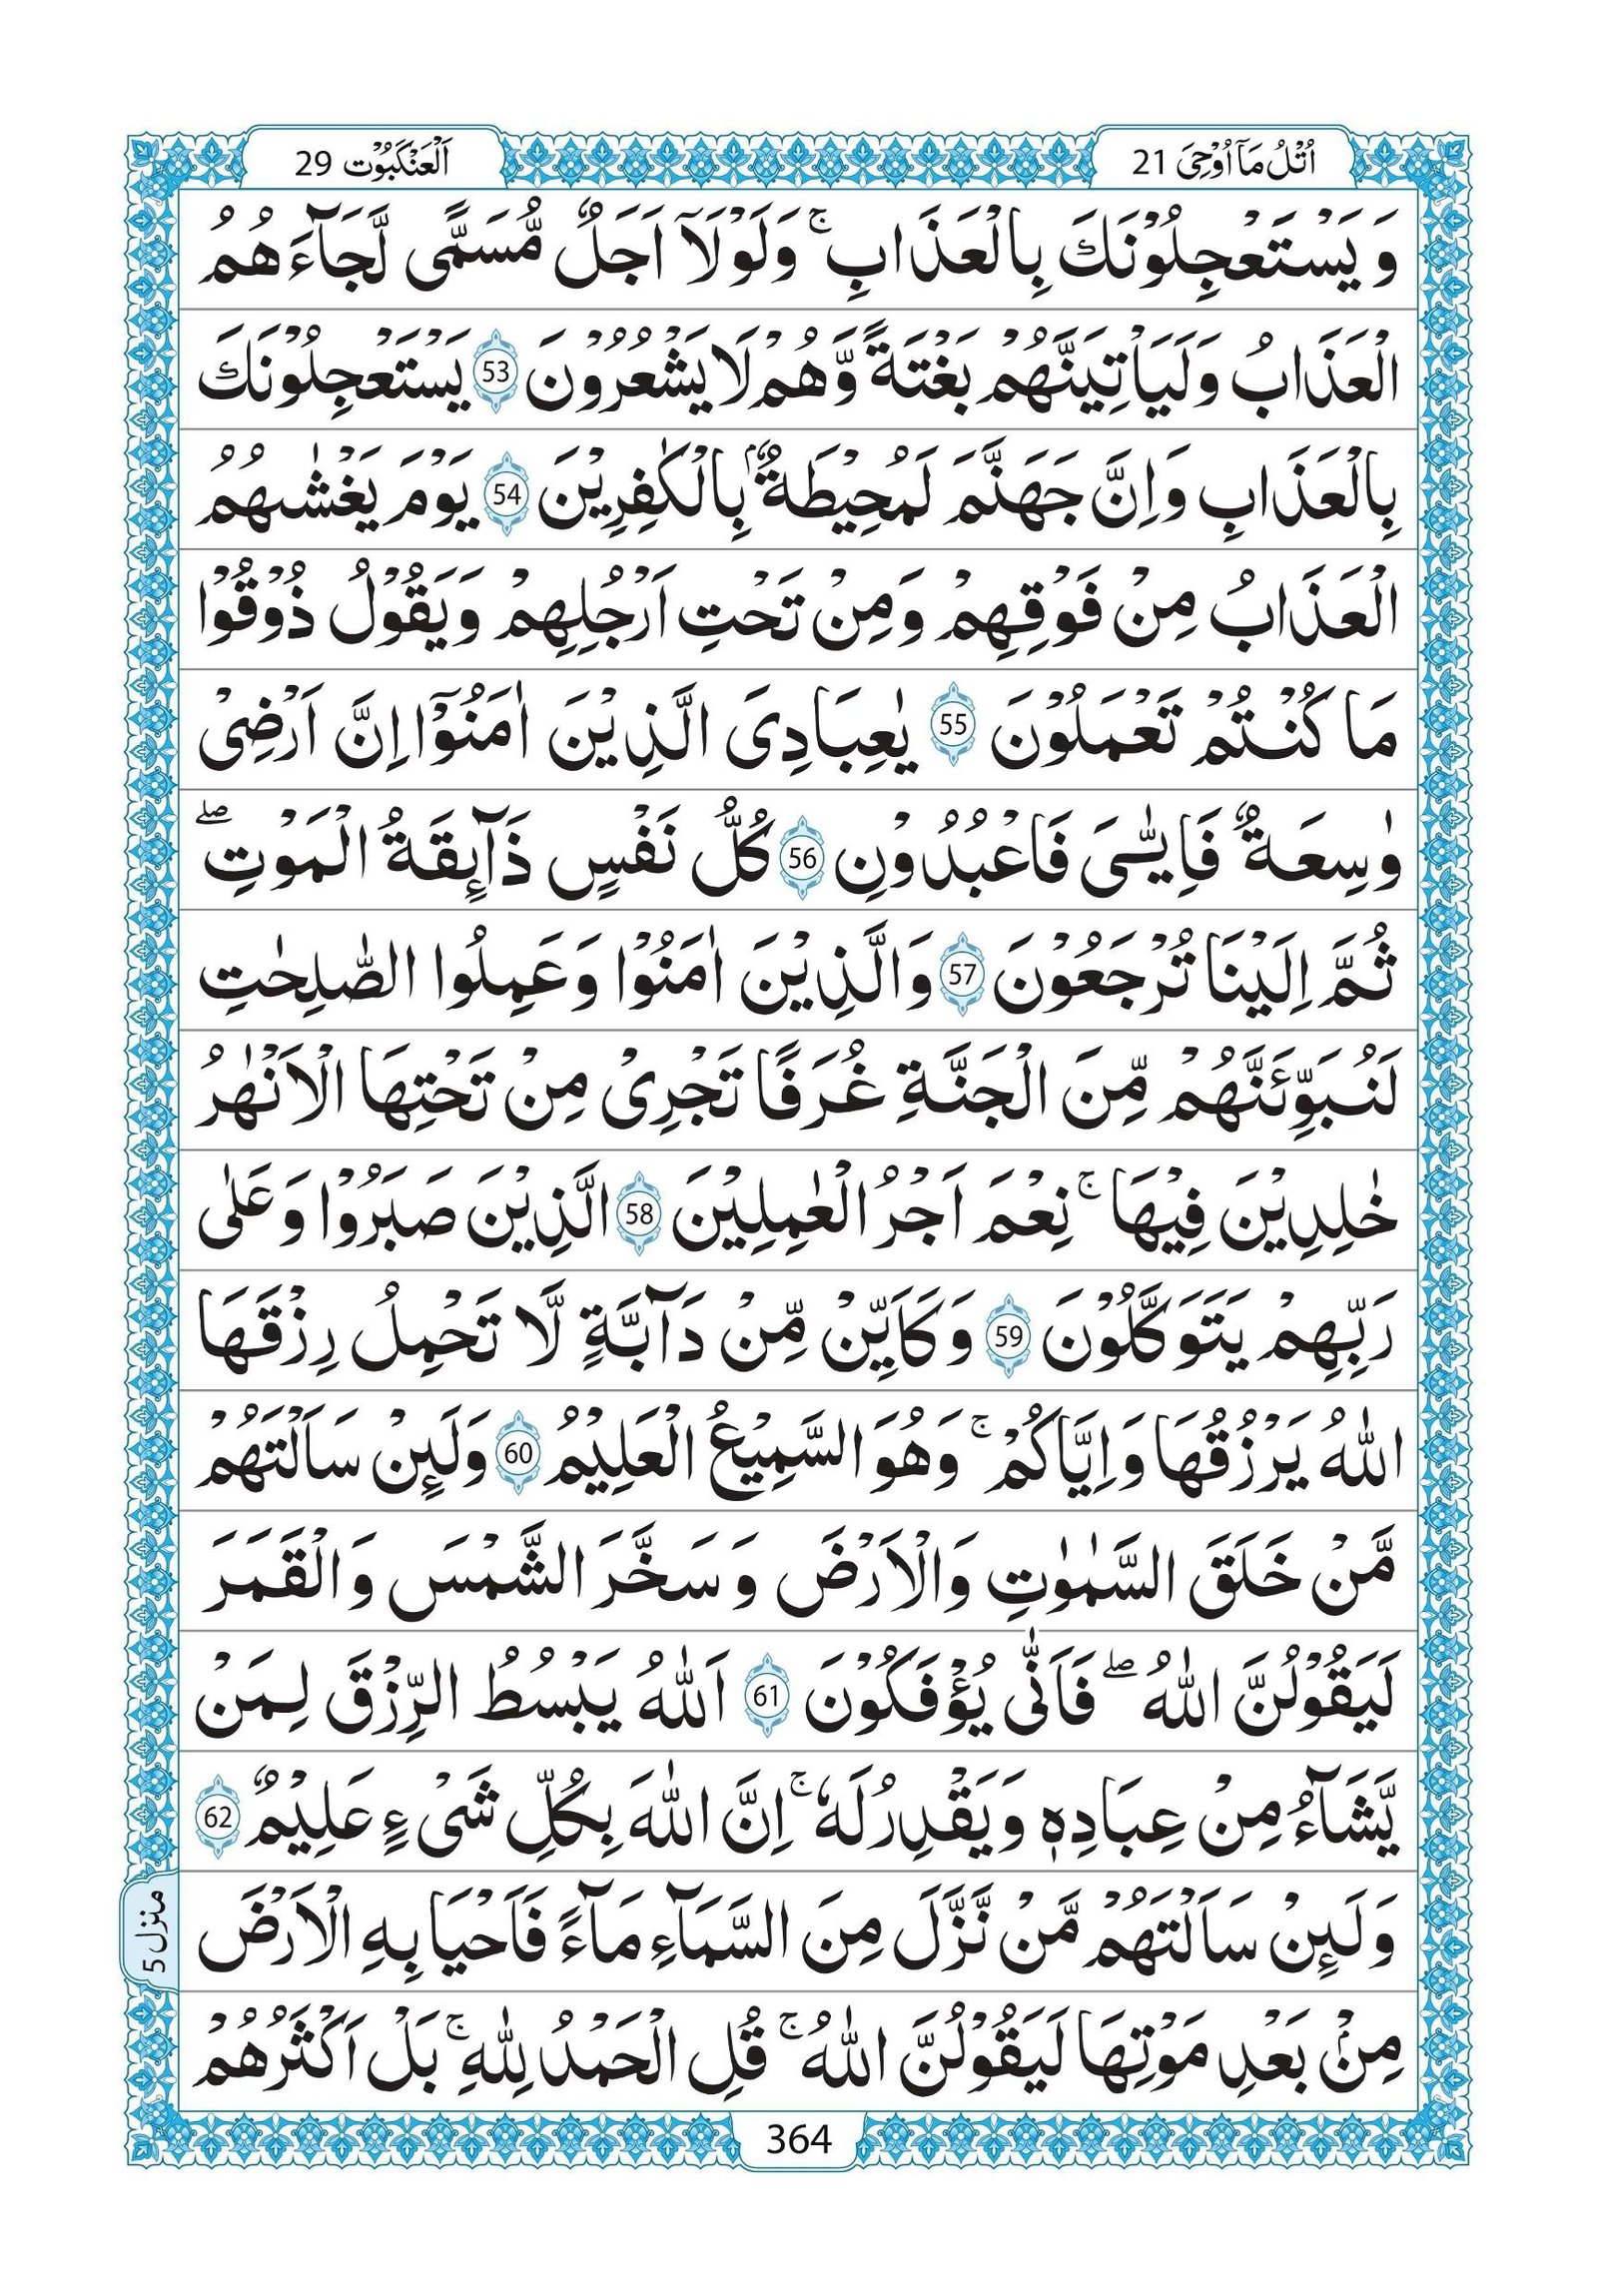 اُتْلُ مَاۤ اُوْحِیَ 21
اَلْعَنْكَبُوْت 29
وَ یَسْتَعْجِلُوْنَكَ بِالْعَذَابِ ۚ وَلَوْلَاۤ اَجَلٌ مُّسَمًّی لَّجَآءَهُمُ
الْعَذَابُ وَلَیَاْتِیَنَّهُمْ بَغْتَةً وَّهُمْ لَا یَشْعُرُوْنَ 53 یَسْتَعْجِلُوْنَكَ
بِالْعَذَابِ وَاِنَّ جَهَنَّمَ لَمُحِیْطَةٌۢ بِالْكٰفِرِیْنَ 54 یَوْمَ یَغْشٰىهُمُ
الْعَذَابُ مِنْ فَوْقِهِمْ وَمِنْ تَحْتِ اَرْجُلِهِمْ وَیَقُوْلُ ذُوْقُوْا
مَا كُنْتُمْ تَعْمَلُوْنَ 55 یٰعِبَادِیَ الَّذِیْنَ اٰمَنُوْۤا اِنَّ اَرْضِیْ
وٰسِعَةٌ فَاِیّٰىیَ فَاعْبُدُوْنِ 56 كُلُّ نَفْسٍ ذَآىِٕقَةُ الْمَوْتِ ۖ
ثُمَّ اِلَیْنَا تُرْجَعُوْنَ 57 وَالَّذِیْنَ اٰمَنُوْا وَعَمِلُوا الصّٰلِحٰتِ
لَنُبَوِّئَنَّهُمْ مِّنَ الْجَنَّةِ غُرَفًا تَجْرِیْ مِنْ تَحْتِهَا الْاَنْهٰرُ
خٰلِدِیْنَ فِیْهَا ۚ نِعْمَ اَجْرُ الْعٰمِلِیْنَ 58 الَّذِیْنَ صَبَرُوْا وَعَلٰی
رَبِّهِمْ یَتَوَكَّلُوْنَ 59 وَكَاَیِّنْ مِّنْ دَآبَّةٍ لَّا تَحْمِلُ رِزْقَهَا
اللّٰهُ یَرْزُقُهَا وَاِیَّاكُمْ ۚ وَهُوَ السَّمِیْعُ الْعَلِیْمُ 60 وَلَىِٕنْ سَاَلْتَهُمْ
مَّنْ خَلَقَ السَّمٰوٰتِ وَالْاَرْضَ وَسَخَّرَ الشَّمْسَ وَالْقَمَرَ
لَیَقُوْلُنَّ اللّٰهُ ۖ فَاَنّٰی یُؤْفَكُوْنَ 61 اَللّٰهُ یَبْسُطُ الرِّزْقَ لِمَنْ
یَّشَآءُ مِنْ عِبَادِهٖ وَیَقْدِرُ لَهٗ ۚ اِنَّ اللّٰهَ بِكُلِّ شَیْءٍ عَلِیْمٌ 62
وَلَىِٕنْ سَاَلْتَهُمْ مَّنْ نَّزَّلَ مِنَ السَّمَآءِ مَآءً فَاَحْیَا بِهِ الْاَرْضَ
مِنْۢ بَعْدِ مَوْتِهَا لَیَقُوْلُنَّ اللّٰهُ ۚ قُلِ الْحَمْدُ لِلّٰهِ ۚ بَلْ اَكْثَرُهُمْ
منزل 5
364